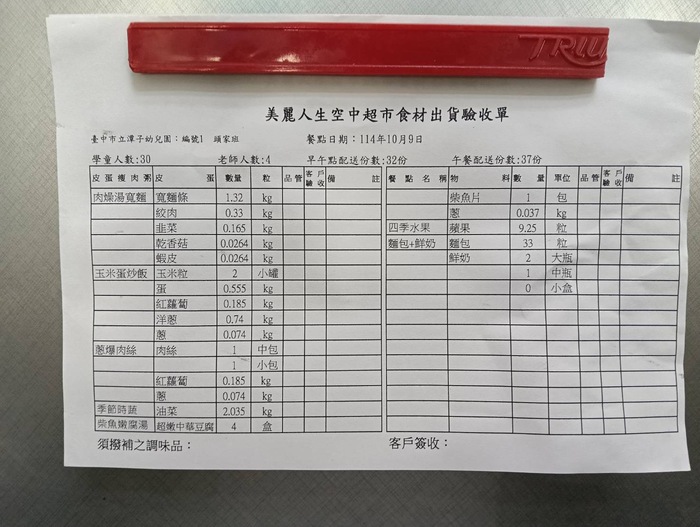 TRIU
美麗人生空中超市食材出貨驗收單
臺中市立潭子幼兒園：編號1 頭家班 餐點日期：114年10月9日
學童人數:30 老師人數:4 早午點配送份數:32份 午餐配送份數:37份
皮蛋瘦肉粥 皮蛋 數量 粒 品管 客戶驗收 備註 餐點名稱 物料 數量 單位 品管 客戶驗收 備註
肉燥湯寬麵 寬麵條 1.32 kg 柴魚片 1 包
絞肉 0.33 kg 蔥 0.037 kg
韭菜 0.165 kg 四季水果 蘋果 9.25 粒
乾香菇 0.0264 kg 麵包+鮮奶 麵包 33 粒
蝦皮 0.0264 kg 鮮奶 2 大瓶
玉米蛋炒飯 玉米粒 2 小罐 1 中瓶
蛋 0.555 kg 0 小盒
紅蘿蔔 0.185 kg
洋蔥 0.74 kg
蔥 0.074 kg
蔥爆肉絲 肉絲 1 中包
1 小包
紅蘿蔔 0.185 kg
蔥 0.074 kg
季節時蔬 油菜 2.035 kg
柴魚嫩腐湯 超嫩中華豆腐 4 盒
須撥補之調味品： 客戶簽收：